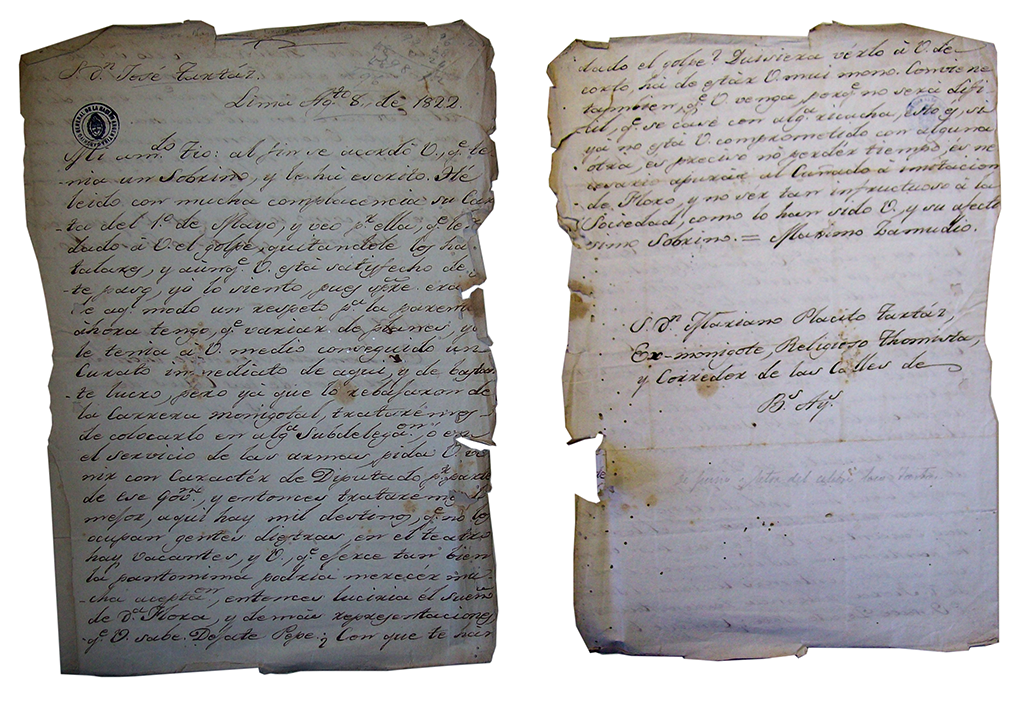 S. Dn José Tartáz.
Lima Agte 8, de 1822.
Mi amdo Tio: al fin se acordó V, qe te-
nia un Sobrino, y le ha escrito. He
leido con mucha complacencia su Car-
ta del 1º de Mayo, y veo pr ella, qe le
dado à V. el golpe, quitandole los ha-
talares, y aunqe V. està satysfecho de
te paso, yo lo siento, pues
e aqe modo un respeto pa la paren
ahora tengo, qe variar de planes, yo
le tema à V. medio conseguido un
Curato inmediato de aqui, y de bastan
te lucro, pero ya que lo rebajaron de
la Carrera monigotal, tratarémos
de colocarlo en alga Subdelegaon, ò en
el servicio de las armas, pida V. ve-
nir con Caractér de Diputado pr parte
de Ese Govno, y entonces trataremos
mejor, aqui hay mil destinos, qe no los
ocupan gentes diestras, en el teatro
hay vacantes, y V, qe eferce tan bien
la pantomima podria merecér mu-
cha aceptaon, entonces luciria el sueño
de Da Flora, y demás representaciones,
qe V. sabe. Dejate Pepe. ¿Con que te han
dado el golpe? Quisiera verlo à V. de
corto, ha de estár V. mui mono. Conviene
tambien, qe V. venga, porqe no sera difi-
til, qe se casé con alga ricacha, esto es, si
yá no esta V. comprometido con alguna
otra, es preciso nò perdér tiempo, es ne-
cesario apurár al Canado à imitacion
de Floro, y no ser tan infructuoso à la
Sociedad, como lo han sido V, y su afecti-
simo Sobrino. = Maximo Zamudio.
S. Dn Mariano Placito Tartáz,
Ex-monigote, Religioso Thomista,
y Corredor de las Calles de
Bs Ays.